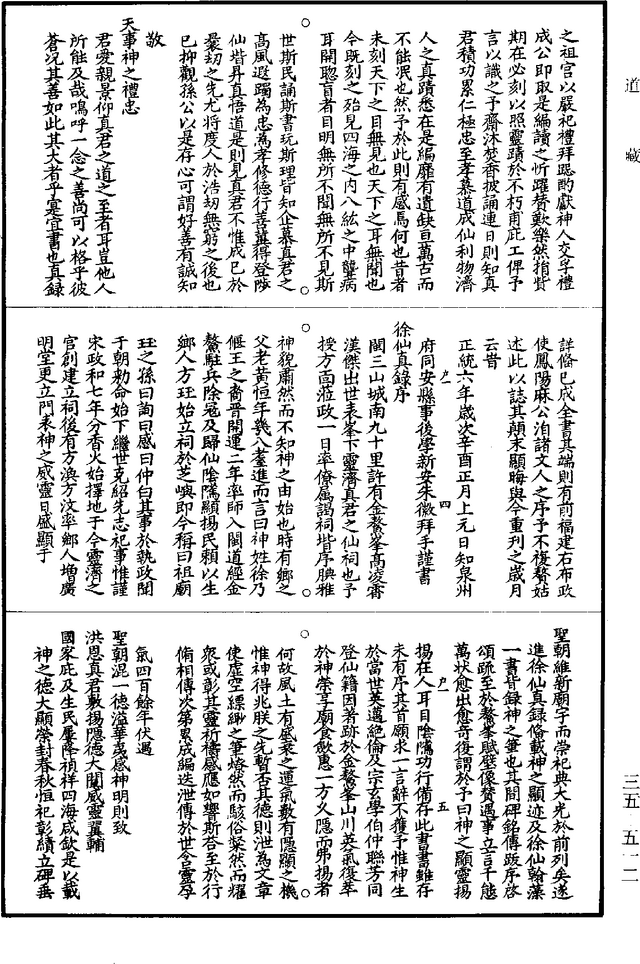 道藏
之祖宮以嚴祀禮拜跽酌獻神人交孚禮
成公即取是編讀之忻躍贊歎樂然捐貲
期在必刻以照靈蹟於不朽甫庇工俾予
言以識之予齋沐焚香披誦連日則知真
君積功累仁極忠至孝慕道成仙利物濟
人之真蹟悉在是編靡有遺缺亘萬古而
不能泯也然予於此則有感焉何也昔者
未刻天下之目無見也天下之耳無聞也
今既刻之殆見四海之內八紘之中聾病
耳開聦盲者目明無所不聞無所不見斯
世斯民誦斯書玩斯理皆知企慕真君之
高風遐躅為忠為孝修德行善冀得登陟
仙堦昇真悟道是則見真君不惟成已於
曩劫之先尤將度人於浩劫無窮之後也
已抑觀孫公以是存心可謂好善有誠知
敬
天事神之禮忠
君愛親景仰真君之道之至者耳豈他人
所能及哉嗚呼一念之善尚可以格乎彼
蒼況其善如此其大者乎寔宜書也真錄
詳俻已成全書其端則有前福建右布政
使鳳陽麻公洎諸文人之序予不復贅姑
述此以誌其顛末顯晦與今重刊之歲月
云旹
正統六年歲次辛酉正月上元日知泉州
府同安縣事後學新安朱徽拜手謹書
徐仙真錄序
閩三山城南九十里許有金鰲峯高凌霄
漢傑出世表峯下靈濟真君之仙祠也予
授方面蒞政一日率僚屬謁祠堦序腆雅
神貌肅然而不知神之由始也時有鄉之
父老黃恒年幾八耋進而言曰神姓徐乃
偃王之裔晉開運二年率師入閩道經金
鰲駐兵除寇及歸仙陰隲顯揚民賴以生
鄉人方珏始立祠於芝嶼即今稱曰祖廟
珏之孫曰詢曰感曰仲曰其事於執政聞
于朝勅命始下繼世克紹先志祀事惟謹
宋政和七年分香火始擇地于今靈濟之
宮創建立祠後有方渙方汶率鄉人增廣
明堂更立門表神之威靈日盛顯于
聖朝維新廟宇而崇祀典大光於前列矣遂
進徐仙真錄俻載神之顯迹及徐仙翰藻
一書皆錄神之筆也其間碑銘傳跋序啓
頌疏至於鰲峯賦壁像贊遇事立言千態
萬狀愈出愈奇復謂於予曰神之顯靈揚
揚在人耳目陰隲功行備存此書書雖存
未有序其首願求一言辭不獲予惟神生
於當世英邁絕倫及宗玄學伯仲聯芳同
登仙籍因著跡於金鰲峯山川英氣復萃
於神榮享廟食敷惠一方久隱而弗揚者
何故風土有盛衰之運氣數有隱顯之機
惟神得兆朕之先暫否其德則泄為文章
使虛空縹緲之筆㷿然而駭俗粲然而耀
衆或彰其靈祈禱感應如響斯荅至於行
俻相傳次第累成編迭泄傳於世含靈孕
氣四百餘年伏遇
聖朝混一德溢華夷感神明則致
洪恩真君敷揚隱德大闡威靈翼輔
國家庇及生民屢降禎祥四海咸歆是以載
神之德大顯榮封春秋恒祀彰績立碑垂
户一
四
户一
五
三五—五一二